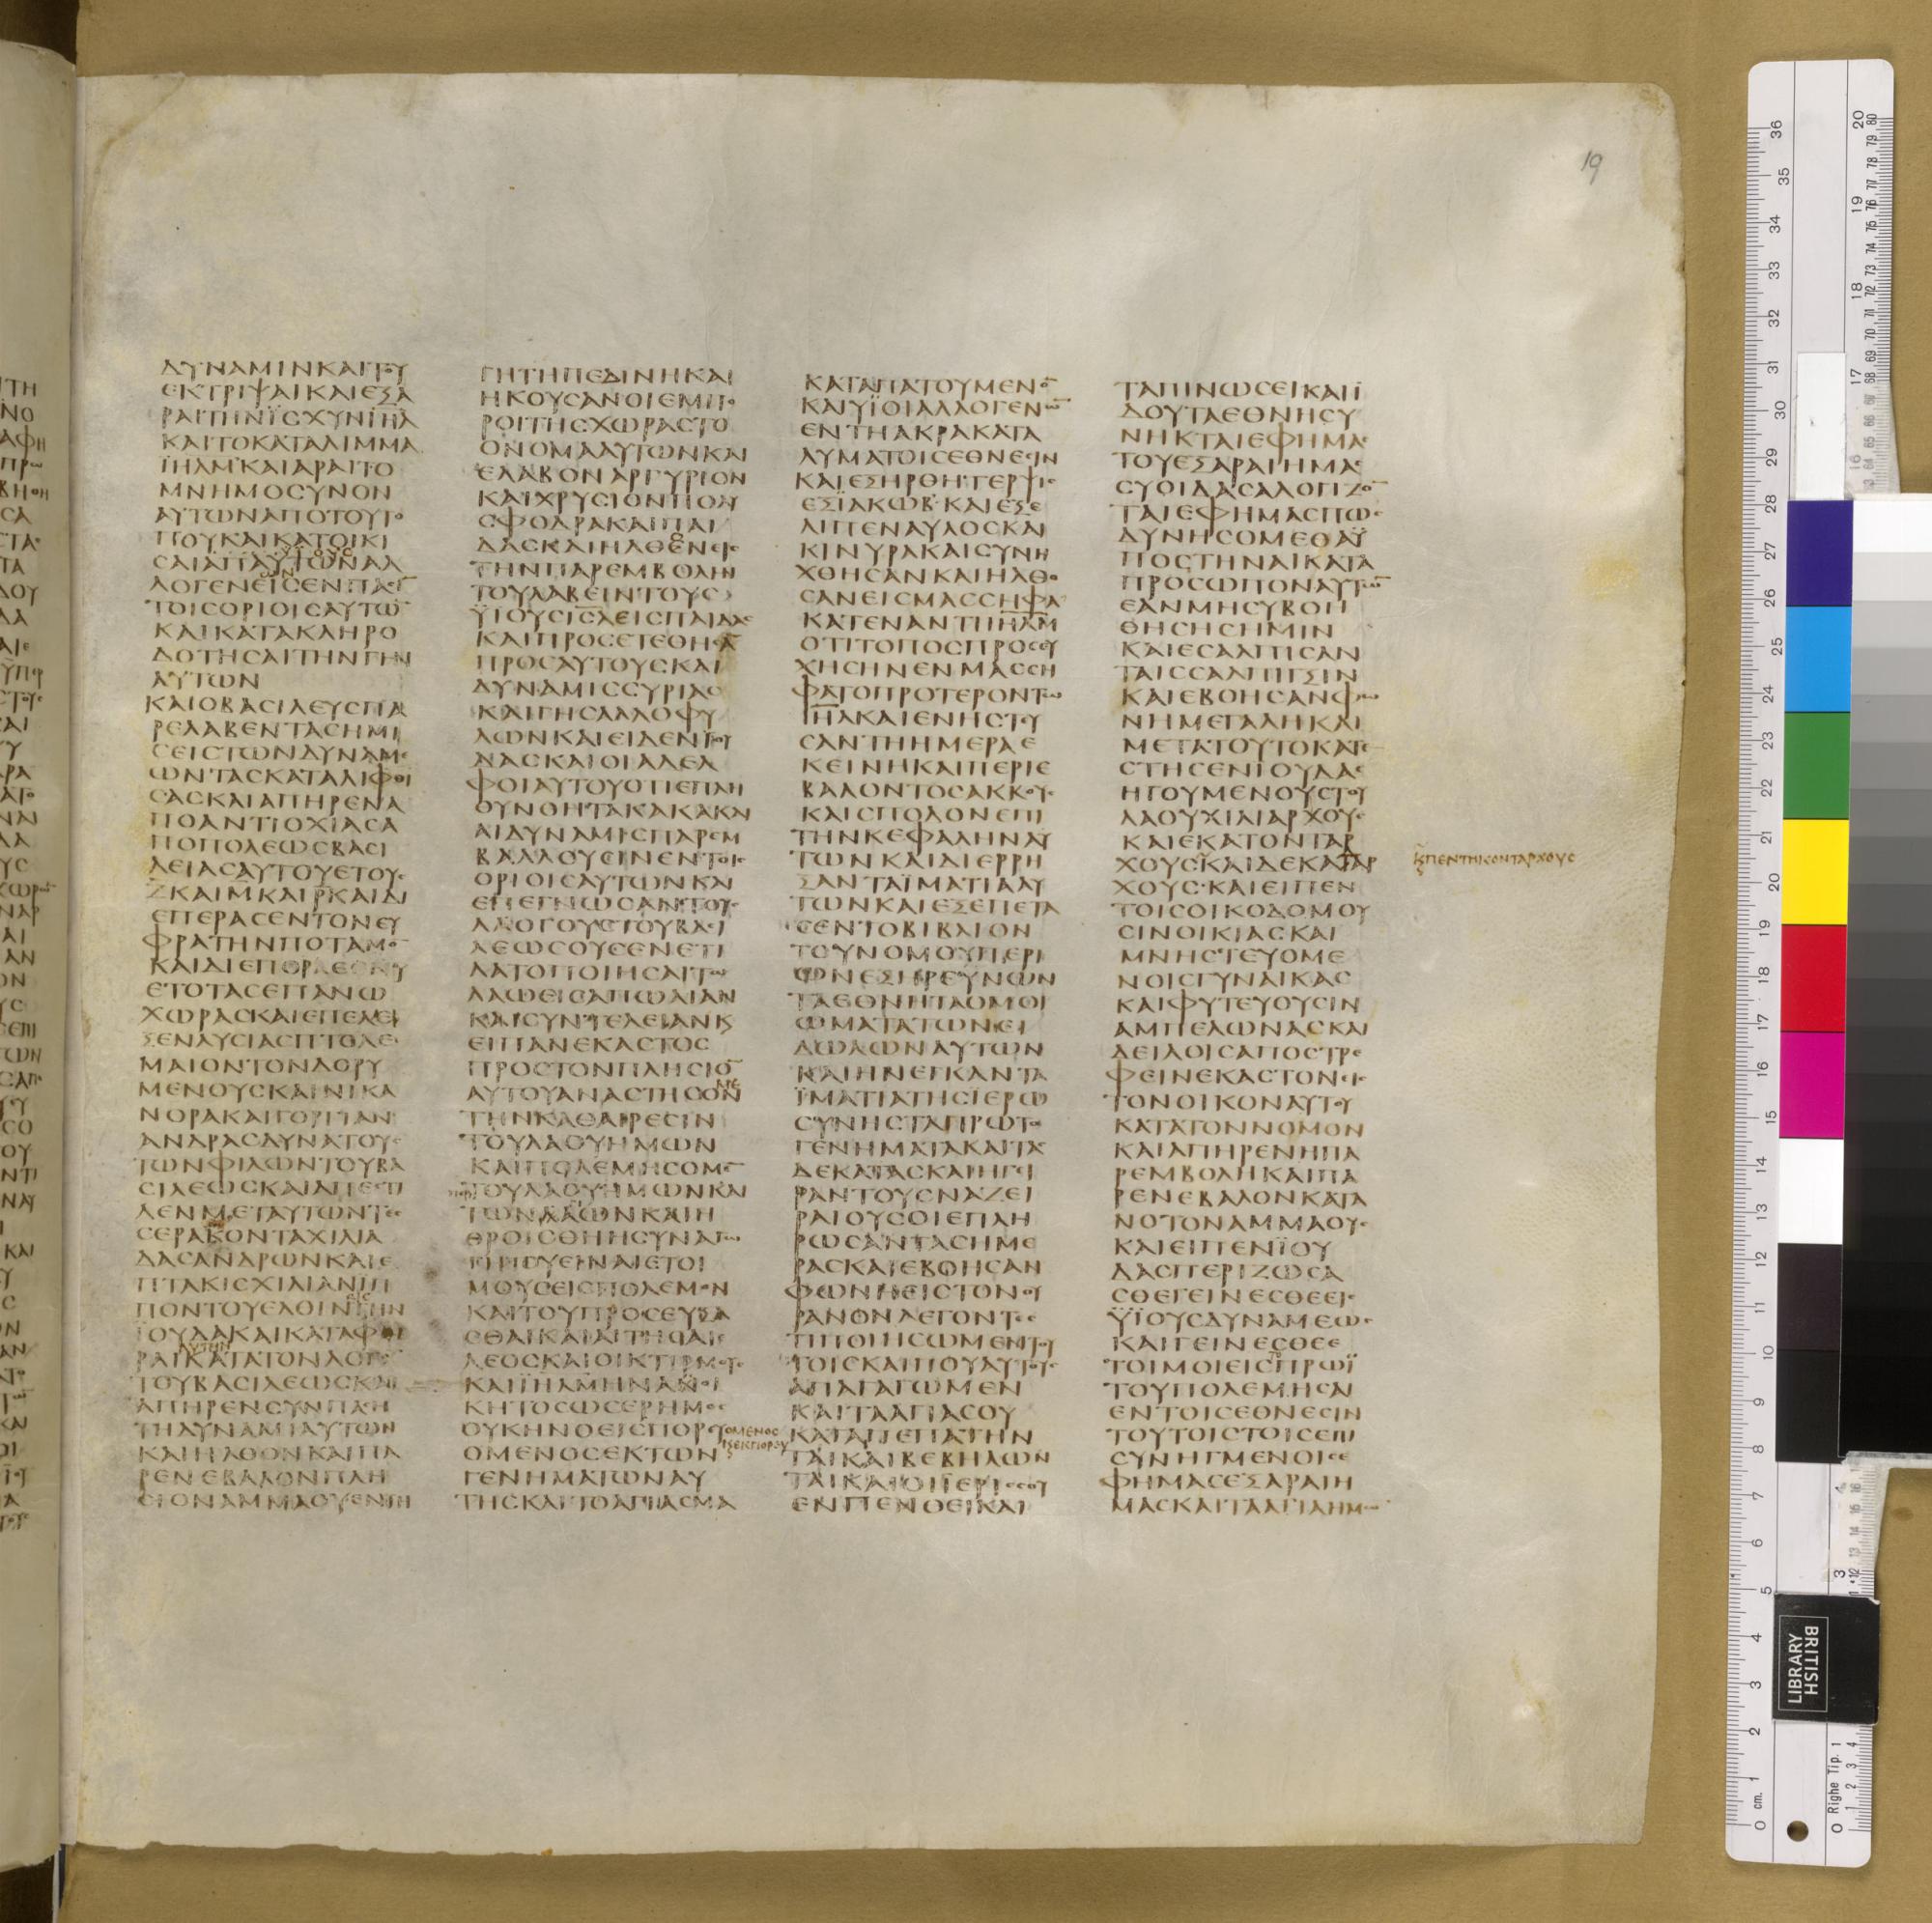 19
ΔΥΝΑΜΙΝΚΑΙΤΟΥ
ΕΚΤΡΙΨΑΙΚΑΙΕΞΑ
ΡΑΙΤΗΝΪϹΧΥΝΙΗΛ
ΚΑΙΤΟΚΑΤΑΛΙΜΜΑ
ΪΗΛΜΚΑΙΑΡΑΙΤΟ
ΜΝΗΜΟϹΥΝΟΝ
ΑΥΤΩΝΑΠΟΤΟΥΤΟ
ΠΟΥΚΑΙΚΑΤΟΙΚΙ
ϹΑΙΑΠΑΥΤΩΝΑΛ
ΛΟΓΕΝΕΙϹΕΝΠΑϹΙ
ΤΟΙϹΟΡΙΟΙϹΑΥΤΩ̅
ΚΑΙΚΑΤΑΚΛΗΡΟ
ΔΟΤΗϹΑΙΤΗΝΓΗΝ
ΑΥΤΩΝ
ΚΑΙΟΒΑϹΙΛΕΥϹΠΑ
ΡΕΛΑΒΕΝΤΑϹΗΜΙ
ϹΕΙϹΤΩΝΔΥΝΑΜΕ
ΩΝΤΑϹΚΑΤΑΛΙΦΘΙ
ϹΑϹΚΑΙΑΠΗΡΕΝΑ
ΠΟΑΝΤΙΟΧΙΑϹΑ
ΠΟΠΟΛΕΩϹΒΑϹΙ
ΛΕΙΑϹΑΥΤΟΥΕΤΟΥϹ
Ζ̅ΚΑΙΜ̅ΚΑΙΡ̅ΚΑΙΔΙ
ΕΠΕΡΑϹΕΝΤΟΝΕΥ
ΦΡΑΤΗΝΠΟΤΑΜΟ̅
ΚΑΙΔΙΕΠΟΡΕΥΕΤΟ
ΕΤΟΤΑϹΕΠΑΝΩ
ΧΩΡΑϹΚΑΙΕΠΕΛΕ
ΞΕΝΛΥϹΙΑϹΠΤΟΛΕ
ΜΑΙΟΝΤΟΝΔΟΡΥ
ΜΕΝΟΥϹΚΑΙΝΙΚΑ
ΝΟΡΑΚΑΙΓΟΡΓΙΑΝ
ΑΝΔΡΑϹΔΥΝΑΤΟΥϹ
ΤΩΝΦΙΛΩΝΤΟΥΒΑ
ϹΙΛΕΩϹΚΑΙΑΠΕϹΤΙ
ΛΕΝΜΕΤΑΥΤΩΝΤΕϹ
ϹΕΡΑΚΟΝΤΑΧΙΛΙΑ
ΔΑϹΑΝΔΡΩΝΚΑΙΕ
ΠΤΑΚΙϹΧΙΛΙΑΝΙΠ
ΠΟΝΤΟΥΕΛΘΙΝΓΗΝ
ΙΟΥΔΑΚΑΙΚΑΤΑΦΘΙ
ΡΑΙΚΑΤΑΤΟΝΛΟΓΟ̅
ΤΟΥΒΑϹΙΛΕΩϹΚΑΙ
ΑΠΗΡΕΝϹΥΝΠΑϹΗ
ΤΗΔΥΝΑΜΙΑΥΤΩΝ
ΚΑΙΗΛΘΟΝΚΑΙΠΑ
ΡΕΝΕΒΑΛΟΝΠΛΗ
ϹΙΟΝΑΜΜΑΟΥΕΝΤΗ
ΓΗΤΗΠΕΔΙΝΗΚΑΙ
ΗΚΟΥϹΑΝΟΙΕΜΠΟ
ΡΟΙΤΗϹΧΩΡΑϹΤΟ
ΟΝΟΜΑΑΥΤΩΝΚΑΙ
ΕΛΑΒΟΝΑΡΓΥΡΙΟΝ
ΚΑΙΧΡΥϹΙΟΝΠΟΛΥ
ϹΦΟΔΡΑΚΑΙΠΑΙ
ΔΑϹΚΑΙΗΛΘΕΝΕΙϹ
ΤΗΝΠΑΡΕΜΒΟΛΗΝ
ΤΟΥΛΑΒΕΙΝΤΟΥϹ
ΫΙΟΥϹΙϹΛΕΙϹΠΑΙΔΑϹ
ΚΑΙΠΡΟϹΕΤΕΘΗϹΑ̅
ΠΡΟϹΑΥΤΟΥϹΚΑΙ
ΔΥΝΑΜΙϹϹΥΡΙΑϹ
ΚΑΙΓΗϹΑΛΛΟΦΥ
ΛΩΝΚΑΙΕΙΔΕΝΙΟΥ
ΔΑϹΚΑΙΟΙΑΔΕΛ
ΦΟΙΑΥΤΟΥΟΤΙΕΠΛΗ
ΘΥΝΘΗΤΑΚΑΚΑΚΑΙ
ΑΙΔΥΝΑΜΙϹΠΑΡΕΜ
ΒΑΛΛΟΥϹΙΝΕΝΤΟΙϹ
ΟΡΙΟΙϹΑΥΤΩΝΚΑΙ
ΕΠΕΓΝΩϹΑΝΤΟΥϹ
ΛΟΓΟΥϹΤΟΥΒΑϹΙ
ΛΕΩϹΟΥϹΕΝΕΤΙ
ΛΑΤΟΠΟΙΗϹΑΙΤΩ
ΛΑΩΕΙϹΑΠΩΛΙΑΝ
ΚΑΙϹΥΝΤΕΛΕΙΑΝΚ
ΕΙΠΑΝΕΚΑϹΤΟϹ
ΠΡΟϹΤΟΝΠΛΗϹΙΟ̅
ΑΥΤΟΥΑΝΑϹΤΗϹΟΝ
ΤΗΝΚΑΘΑΙΡΕϹΙΝ
ΤΟΥΛΑΟΥΗΜΩΝ
ΚΑΙΠΟΛΕΜΗϹΟΜΕ̅
ΤΟΥΛΑΟΥΗΜΩΝΚΑΙ
ΤΩΝΑΓΙΩΝΚΑΙΗ
ΘΡΟΙϹΘΗΗϹΥΝΑΓΩ
ΓΗΤΟΥΕΙΝΑΙΕΤΟΙ
ΜΟΥϹΕΙϹΠΟΛΕΜΟΝ
ΚΑΙΤΟΥΠΡΟϹΕΥΞΑ
ϹΘΑΙΚΑΙΑΙΤΗϹΑΙΕ
ΛΕΟϹΚΑΙΟΙΚΤΙΡΜΟΥϹ
ΚΑΙΪΗΛΜΗΝΑΟΙ
ΚΗΤΟϹΩϹΕΡΗΜΟϹ
ΟΥΚΗΝΟΕΙϹΠΟΡΕΥ
ΟΜΕΝΟϹ
ΚΕΚΠΟΡΕΥ
ΟΜΕΝΟϹΕΚΤΩΝ
ΓΕΝΗΜΑΤΩΝΑΥ
ΤΗϹΚΑΙΤΟΑΓΙΑϹΜΑ
ΚΑΤΑΠΑΤΟΥΜΕΝΟ̅
ΚΑΙΥΪΟΙΑΛΛΟΓΕΝΩ̅
ΕΝΤΗΑΚΡΑΚΑΤΑ
ΛΥΜΑΤΟΙϹΕΘΝΕϹΙΝ
ΚΑΙΕΞΗΡΘΗΤΕΡΨΙϹ
ΕΞΪΑΚΩΒΚΑΙΕΞΕ
ΛΙΠΕΝΑΥΛΟϹΚΑΙ
ΚΙΝΥΡΑΚΑΙϹΥΝΗ
ΧΘΗϹΑΝΚΑΙΗΛΘΟ
ϹΑΝΕΙϹΜΑϹϹΗΦΑ
ΚΑΤΕΝΑΝΤΙΙΗΛΜ
ΟΤΙΤΟΠΟϹΠΡΟϹΕΥ
ΧΗϹΗΝΕΝΜΑϹϹΗ
ΦΑΤΟΠΡΟΤΕΡΟΝΤΩ
ΙΗΛΚΑΙΕΝΗϹΤΕΥ
ϹΑΝΤΗΗΜΕΡΑΕ
ΚΕΙΝΗΚΑΙΠΕΡΙΕ
ΒΑΛΟΝΤΟϹΑΚΚΟΥϹ
ΚΑΙϹΠΟΔΟΝΕΠΙ
ΤΗΝΚΕΦΑΛΗΝΑΥ
ΤΩΝΚΑΙΔΙΕΡΡΗ
ΞΑΝΤΑΪΜΑΤΙΑΑΥ
ΤΩΝΚΑΙΕΞΕΠΕΤΑ
ϹΕΝΤΟΒΙΒΛΙΟΝ
ΤΟΥΝΟΜΟΥΠΕΡΙ
ΩΝΕΞΗΡΕΥΝΩΝ
ΤΑΕΘΝΗΤΑΟΜΟΙ
ΩΜΑΤΑΤΩΝΕΙ
ΔΩΛΩΝΑΥΤΩΝ
ΚΑΙΗΝΕΓΚΑΝΤΑ
ΪΜΑΤΙΑΤΗϹΪΕΡΩ
ϹΥΝΗϹΤΑΠΡΩΤΟ
ΓΕΝΗΜΑΤΑΚΑΙΤΑϹ
ΔΕΚΑΤΑϹΚΑΙΗΓΙ
ΡΑΝΤΟΥϹΝΑΖΕΙ
ΡΑΙΟΥϹΟΙΕΠΛΗ
ΡΩϹΑΝΤΑϹΗΜΕ
ΡΑϹΚΑΙΕΒΟΗϹΑΝ
ΦΩΝΗΕΙϹΤΟΝΟΥ
ΡΑΝΟΝΛΕΓΟΝΤΕϹ
ΤΙΠΟΙΗϹΩΜΕΝΤΟΥ
ΤΟΙϹΚΑΙΠΟΥΑΥΤΟΥϹ
ΑΠΑΓΑΓΩΜΕΝ
ΚΑΙΤΑΑΓΙΑϹΟΥ
ΚΑΤΑΠΕΠΑΤΗΝ
ΤΑΙΚΑΙΒΕΒΗΛΩΝ
ΤΑΙΚΑΙΟΙΙΕΡΙϹϹΟΥ
ΕΝΠΕΝΘΕΙΚΑΙ
ΤΑΠΙΝΩϹΕΙΚΑΙΪ
ΔΟΥΤΑΕΘΝΗϹΥ
ΝΗΚΤΑΙΕΦΗΜΑϹ
ΤΟΥΕΞΑΡΑΙΗΜΑϹ
ϹΥΟΙΔΑϹΑΛΟΓΙΖΟ̅
ΤΑΙΕΦΗΜΑϹΠΩϹ
ΔΥΝΗϹΟΜΕΘΑΫ
ΠΟϹΤΗΝΑΙΚΑΤΑ
ΠΡΟϹΩΠΟΝΑΥΤΩ̅
ΕΑΝΜΗϹΥΒΟΗ
ΘΗϹΗϹΗΜΙΝ
ΚΑΙΕϹΑΛΠΙϹΑΝ
ΤΑΙϹϹΑΛΠΙΓΞΙΝ
ΚΑΙΕΒΟΗϹΑΝΦΩ
ΝΗΜΕΓΑΛΗΚΑΙ
ΜΕΤΑΤΟΥΤΟΚΑΤΕ
ϹΤΗϹΕΝΙΟΥΔΑϹ
ΗΓΟΥΜΕΝΟΥϹΤΟΥ
ΛΑΟΥΧΙΛΙΑΡΧΟΥϹ
ΚΑΙΕΚΑΤΟΝΤΑΡ
ΧΟΥϹΚΑΙΔΕΚΑΤΑΡ
ΚΠΕΝΤΗΚΟΝΤΑΡΧΟΥϹ
ΧΟΥϹ·ΚΑΙΕΙΠΕΝ
ΤΟΙϹΟΙΚΟΔΟΜΟΥ
ϹΙΝΟΙΚΙΑϹΚΑΙ
ΜΝΗϹΤΕΥΟΜΕ
ΝΟΙϹΓΥΝΑΙΚΑϹ
ΚΑΙΦΥΤΕΥΟΥϹΙΝ
ΑΜΠΕΛΩΝΑϹΚΑΙ
ΔΕΙΛΟΙϹΑΠΟϹΤΡΕ
ΦΕΙΝΕΚΑϹΤΟΝΕΙϹ
ΤΟΝΟΙΚΟΝΑΥΤΟΥ
ΚΑΤΑΤΟΝΝΟΜΟΝ
ΚΑΙΑΠΗΡΕΝΗΠΑ
ΡΕΜΒΟΛΗΚΑΙΠΑ
ΡΕΝΕΒΑΛΟΝΚΑΤΑ
ΝΟΤΟΝΑΜΜΑΟΥϹ
ΚΑΙΕΙΠΕΝΪΟΥ
ΔΑϹΠΕΡΙΖΩϹΑ
ϹΘΕΓΕΙΝΕϹΘΕΕΙϹ
ΫΪΟΥϹΔΥΝΑΜΕΩϹ
ΚΑΙΓΕΙΝΕϹΘΕΕ
ΤΟΙΜΟΙΕΙϹΠΡΩΪ
ΤΟΥΠΟΛΕΜΗϹΑΙ
ΕΝΤΟΙϹΕΘΝΕϹΙΝ
ΤΟΥΤΟΙϹΤΟΙϹΕΠΙ
ϹΥΝΗΓΜΕΝΟΙϹΕ
ΦΗΜΑϹΕΞΑΡΑΙΗ
ΜΑϹΚΑΙΤΑΑΓΙΑΗΜΩ̅
BRITISH
LIBRARY